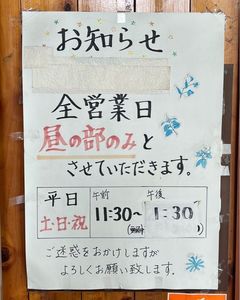 お知らせ
全営業日
昼の部のみと
させていただきます。
平日
土・日・祝
午前
11:30～
午後
1:30
ご迷惑をおかけしますが
よろしくお願い致します。